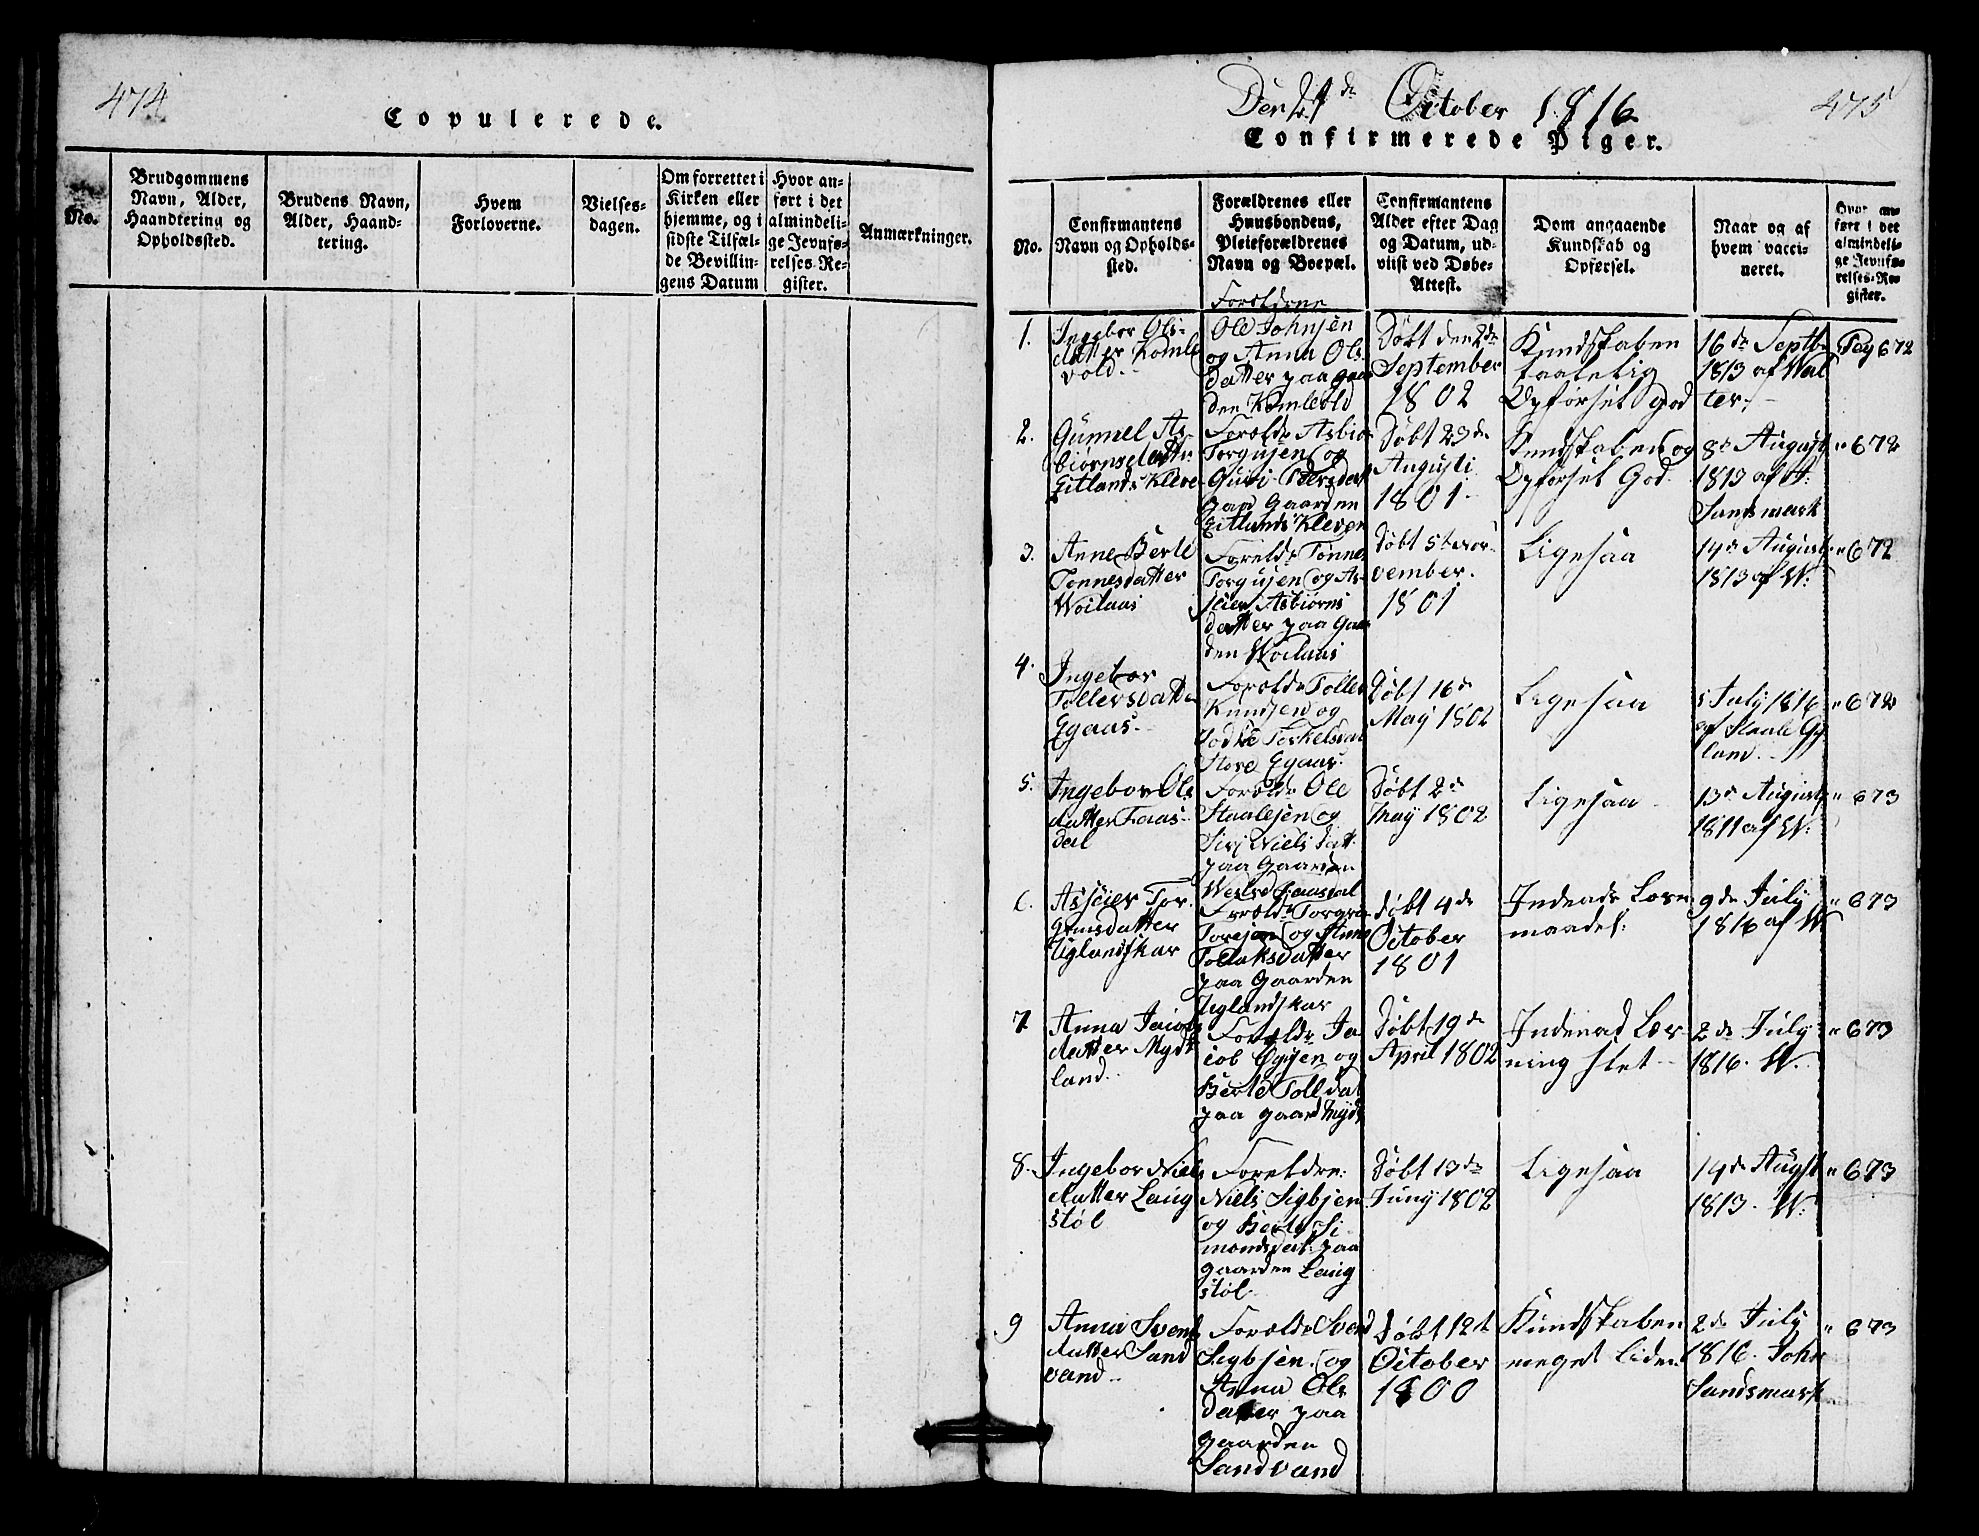 474
Copulerede.
No.
Brudgommens
Navn, Alder,
Haandtering og
Opholdssted.
Brudens Navn,
Alder, Haand-
tering.
Hvem
Forloverne.
Vielses-
dagen.
Om forrettet i
Kirken eller
hjemme, og i
sidste Tilfæl-
de Bevillin-
gens Datum
Hvor an-
ført i det
almindeli-
ge Jevnfø-
relses-Re-
gister.
Anmærkninger.
Den 21de October 1816
475
Confirmerede Piger.
No.
Confirmantens
Navn og Opholds-
sted.
Forældrenes eller
Huusbondens,
Pleieforældrenes
Navn og Boepæl.
Confirmantens
Alder efter Dag
og Datum, ud-
viist ved Døbe-
Attest.
Dom angaaende
Kundskab og
Opførsel.
Naar og af
hvem vacci-
neret.
Hvor an-
ført i det
almindeli-
ge Jevnfø-
relses-Re-
gister.
1.
Ingebor Ols-
datter Komle
vold
Foreldrene
Ole Johnsen
og Anna Ols
datter paa gaar
den Komlevold
Døbt den 2de
September
1802
Kundskaben
taalelig
Opførsel God
16de Septb.
1813 af Wal
ter.
Pag 672
2.
Gunnel As
biørnsdatter
Eitlands Kleve
Foreldr. Asbiø
Torgusen og
Guri Pedersdat
paa Gaarden
Eitlands Kleven
Døbt 23de
Augusti
1801
Kundskaben og
Opførsel God
8de August
1813 af J:
Sandsmark
" 672
3.
Anne Berte
Tønnesdatter
Woilaas
Foreldr Tønne
Torgusen og As-
seier Asbiørns
datter paa Gaar
den Woilaas
Døbt 5te Nor-
vember.
1801
Ligesaa
14de August
1813 af W:
" 672
4.
Ingebor
Tollevsdatter
Egaas
Foreldr Tollev
Knudsen og
Torkelsdat
Store Egaas
Døbt 16de
May 1802
Ligesaa
5 July 1816
af Staale Gy
land
" 672
5.
Ingebor Ols
datter Faas-
dal
Foreldr Ole
Staalesen og
Siri Niels Datt.
paa Gaarden
Westre Faasdal
Døbt 2de
May 1802
Ligesaa
13de August
1811 af W:
" 673
6.
Asseier Tor
grimsdatter
Uglandskar
Foreldr Torgrim
Toresen og Anna
Tollaksdatter
paa Gaarden
Uglandskar
Døbt 4de
October
1801
Indenads Læse
maadel:
9de July
1816 af W:
" 673
7.
Anna Jacobs
datter Mydt
land
Foreldr Ja
cob Oggsen og
Berte Toll dat
paa gaard Mydt
Døbt 19de
April 1802
Indenad Lær-
ning slet
2de July
1816. W.
" 673
8.
Ingebor Niels
datter Laug
støl
Foreldre:
Niels Sigbjen
og Berte Si
monsdat: paa
gaarden Laug
støl
Døbt 13de
Juny 1802
Ligesaa
14de Augst
1813. W:
" 673
9
Anna Svens
datter Sand
vand
Foreldr Svend
Sigbjen og
Anna Ols
datter paa
gaarden
Sandvand
Døbt 12te
October
1800
Kundskaben
meget Liden
2de July
1816. John
Sandsmark
" 673